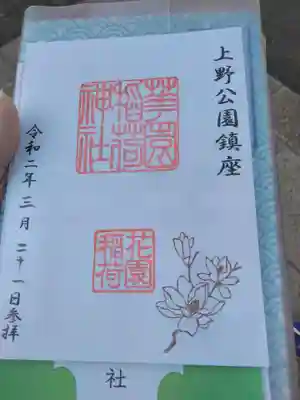 上野公園鎮座
花園
稲荷
神社
花園
稲荷
令和二年三月二十一日参拝
社